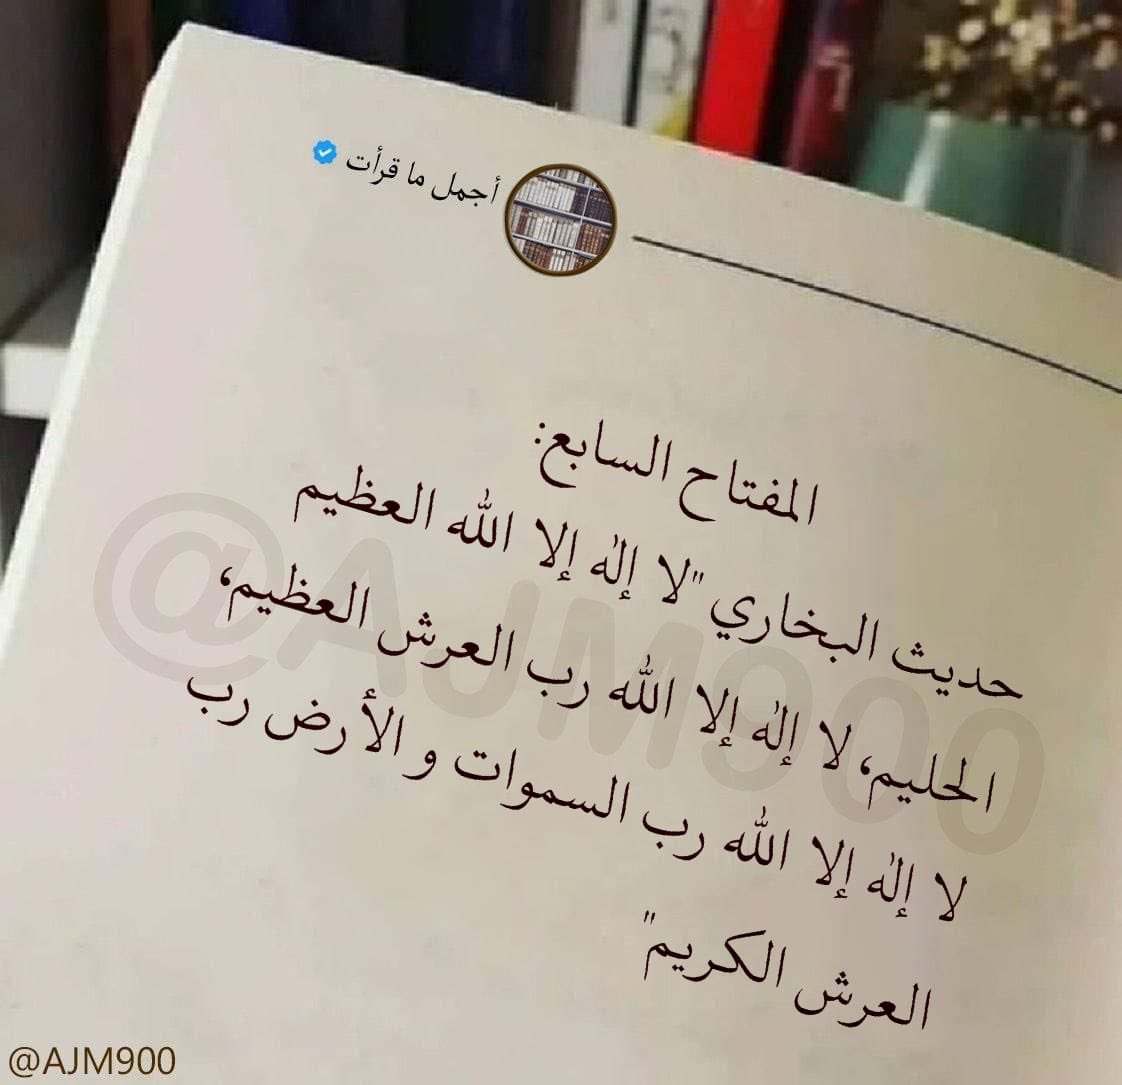 أجمل ما قرأت
المفتاح السابع:
حديث البخاري "لا إلٰه إلا الله العظيم
الحليم، لا إلٰه إلا الله رب العرش العظيم،
لا إلٰه إلا الله رب السموات و الأرض رب
العرش الكريم"
@AJM900
@AJM900